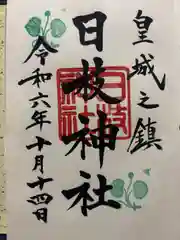 皇城之鎮
日枝神社
令和六年十月十四日
日枝神社